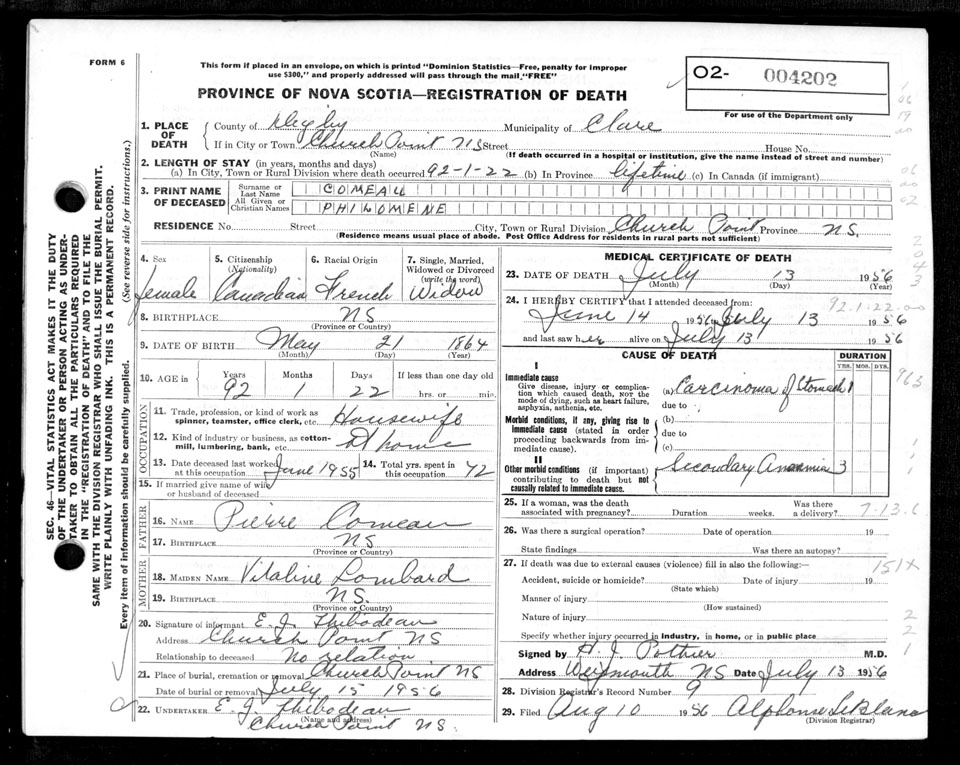 FORM 6
This form if placed in an envelope, on which is printed "Dominion Statistics—Free, penalty for improper
use $300," and properly addressed will pass through the mail "FREE"
PROVINCE OF NOVA SCOTIA—REGISTRATION OF DEATH
O2- 004202
For use of the Department only
SEC. 46—VITAL STATISTICS ACT MAKES IT THE DUTY
OF THE UNDERTAKER OR PERSON ACTING AS UNDER-
TAKER TO OBTAIN ALL THE PARTICULARS REQUIRED
IN THE "REGISTRATION OF DEATH" AND TO FILE THE
SAME WITH THE DIVISION REGISTRAR WHO SHALL ISSUE THE BURIAL PERMIT.
WRITE PLAINLY WITH UNFADING INK. THIS IS A PERMANENT RECORD.
Every item of information should be carefully supplied. (See reverse side for instructions.)
1. PLACE OF DEATH County of Digby Municipality of Clare
If in City or Town Church Point NS Street House No.
(Name) (If death occurred in a hospital or institution, give the name instead of street and number)
2. LENGTH OF STAY (in years, months and days)
(a) In City, Town or Rural Division where death occurred 92-1-22 (b) In Province lifetime (c) In Canada (if immigrant)
3. PRINT NAME OF DECEASED Surname or Last Name COMEAU
All Given or Christian Names PHILOMENE
RESIDENCE No. Street City, Town or Rural Division Church Point Province NS.
(Residence means usual place of abode. Post Office Address for residents in rural parts not sufficient)
4. Sex female
5. Citizenship (Nationality) Canadian
6. Racial Origin French
7. Single, Married, Widowed or Divorced (write the word) Widow
8. BIRTHPLACE NS
(Province or Country)
9. DATE OF BIRTH May 21 1864
(Month) (Day) (Year)
10. AGE in Years Months Days If less than one day old
92 1 22 hrs. or min.
OCCUPATION
11. Trade, profession, or kind of work as spinner, teamster, office clerk, etc. Housewife
12. Kind of industry or business, as cotton-mill, lumbering, bank, etc. At home
13. Date deceased last worked at this occupation June 1955 14. Total yrs. spent in this occupation 72
15. If married give name of wife or husband of deceased
FATHER
16. NAME Pierre Comeau
17. BIRTHPLACE NS
(Province or Country)
MOTHER
18. MAIDEN NAME Vitaline Lombard
19. BIRTHPLACE NS.
(Province or Country)
20. Signature of informant E. J. Thibodeau
Address Church Point NS
Relationship to deceased No relation
21. Place of burial, cremation or removal Church Point NS
Date of burial or removal July 15 1956
22. UNDERTAKER E. J. Thibodeau
(Name and address)
Church Point NS.
MEDICAL CERTIFICATE OF DEATH
23. DATE OF DEATH July 13 1956
(Month) (Day) (Year)
24. I HEREBY CERTIFY that I attended deceased from: 92.1.22
June 14 1956 to July 13 1956
and last saw her alive on July 13 1956
CAUSE OF DEATH DURATION
YRS. MOS. DYS.
I
Immediate cause
Give disease, injury or complication which caused death, NOT the mode of dying, such as heart failure, asphyxia, asthenia, etc.
(a) Carcinoma of Stomach 1
due to
Morbid conditions, if any, giving rise to immediate cause (stated in order proceeding backwards from immediate cause).
(b)
due to
(c)
II
Other morbid conditions (if important) contributing to death but not causally related to immediate cause.
Secondary Anaemia 3
25. If a woman, was the death associated with pregnancy? Duration weeks. Was there a delivery? 7-13-6
26. Was there a surgical operation? Date of operation 19
State findings Was there an autopsy?
27. If death was due to external causes (violence) fill in also the following:— 151X
Accident, suicide or homicide? Date of injury 19
(State which)
Manner of injury
(How sustained)
Nature of injury
Specify whether injury occurred in Industry, in home, or in public place
Signed by H. J. Pothier M.D.
Address Weymouth NS Date July 13 1956
28. Division Registrar's Record Number 9
29. Filed Aug 10 1956 Alphonse LeBlanc
(Division Registrar)